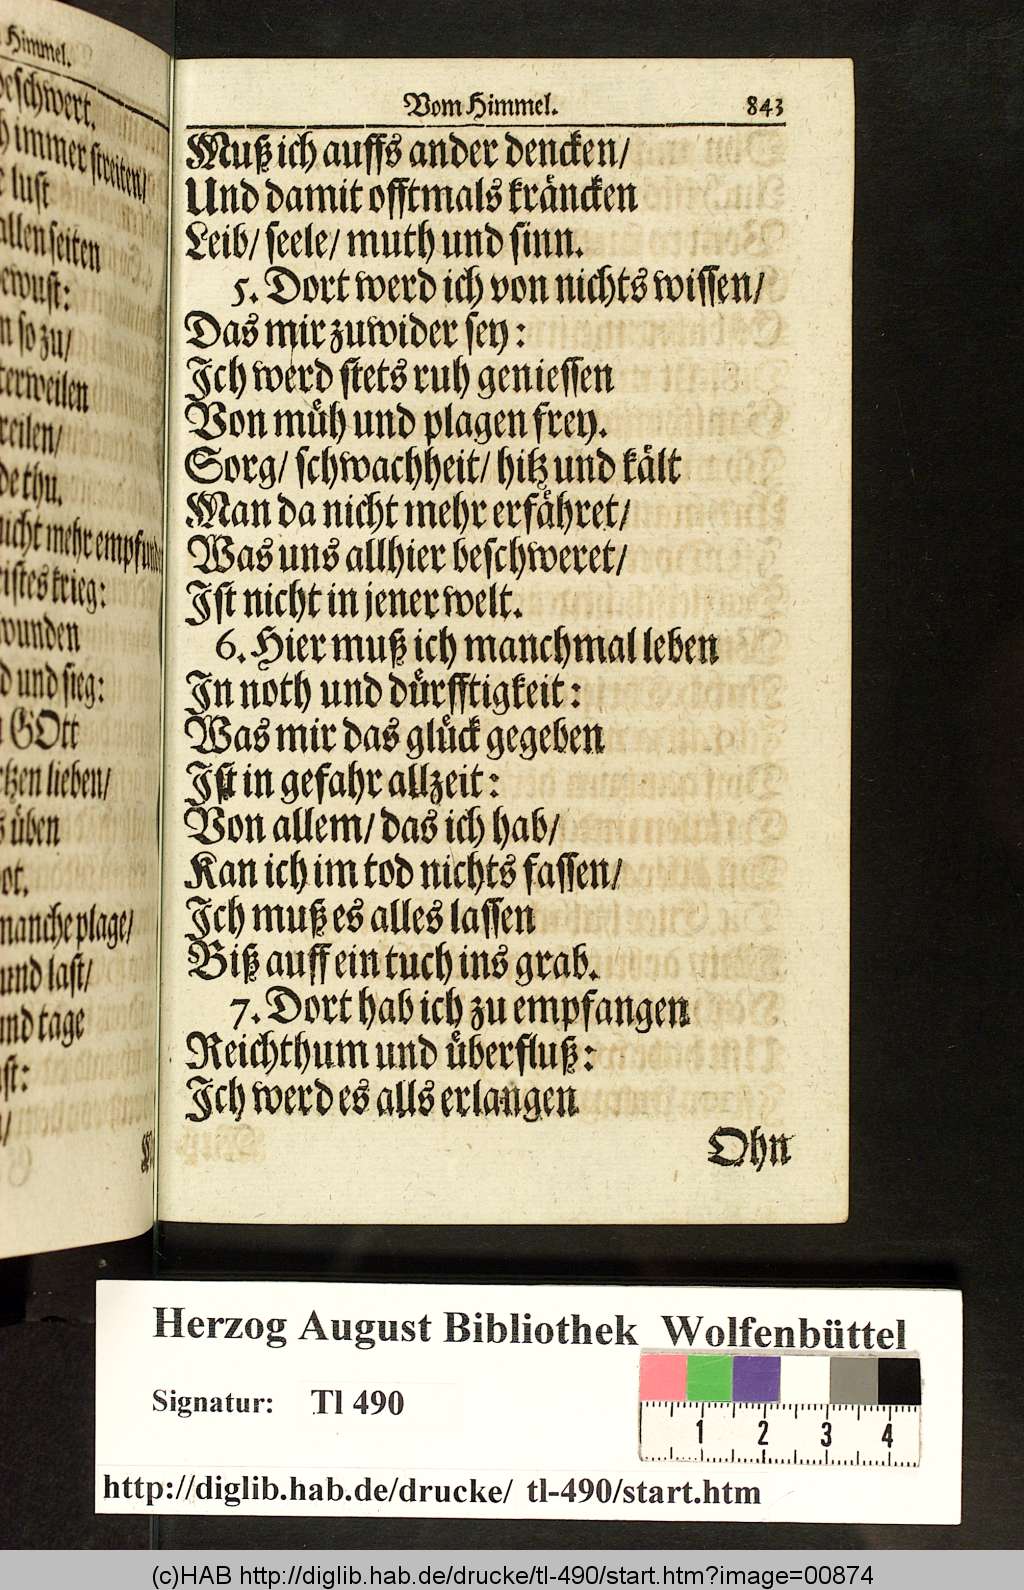 Himmel.
beschwert.
immer streiten/
lust
allen seiten
bewust:
so zu/
unterweilen
eilen/
thu.
nicht mehr empfunden
krieg:
wunden
und sieg:
GOtt
lieben/
üben
manche plage/
und last/
und tage
Vom Himmel. 843
Muß ich auffs ander dencken/
Und damit offtmals kräncken
Leib/ seele/ muth und sinn.
5. Dort werd ich von nichts wissen/
Das mir zuwider sey:
Ich werd stets ruh geniessen
Von müh und plagen frey.
Sorg/ schwachheit/ hitz und kält
Man da nicht mehr erfähret/
Was uns allhier beschweret/
Ist nicht in jener welt.
6. Hier muß ich manchmal leben
In noth und dürfftigkeit:
Was mir das glück gegeben
Ist in gefahr allzeit:
Von allem/ das ich hab/
Kan ich im tod nichts fassen/
Ich muß es alles lassen
Biß auff ein tuch ins grab.
7. Dort hab ich zu empfangen
Reichthum und überfluß:
Ich werd es alls erlangen
Ohn
Herzog August Bibliothek Wolfenbüttel
Signatur: Tl 490
1 2 3 4
http://diglib.hab.de/drucke/ tl-490/start.htm
(c)HAB http://diglib.hab.de/drucke/tl-490/start.htm?image=00874